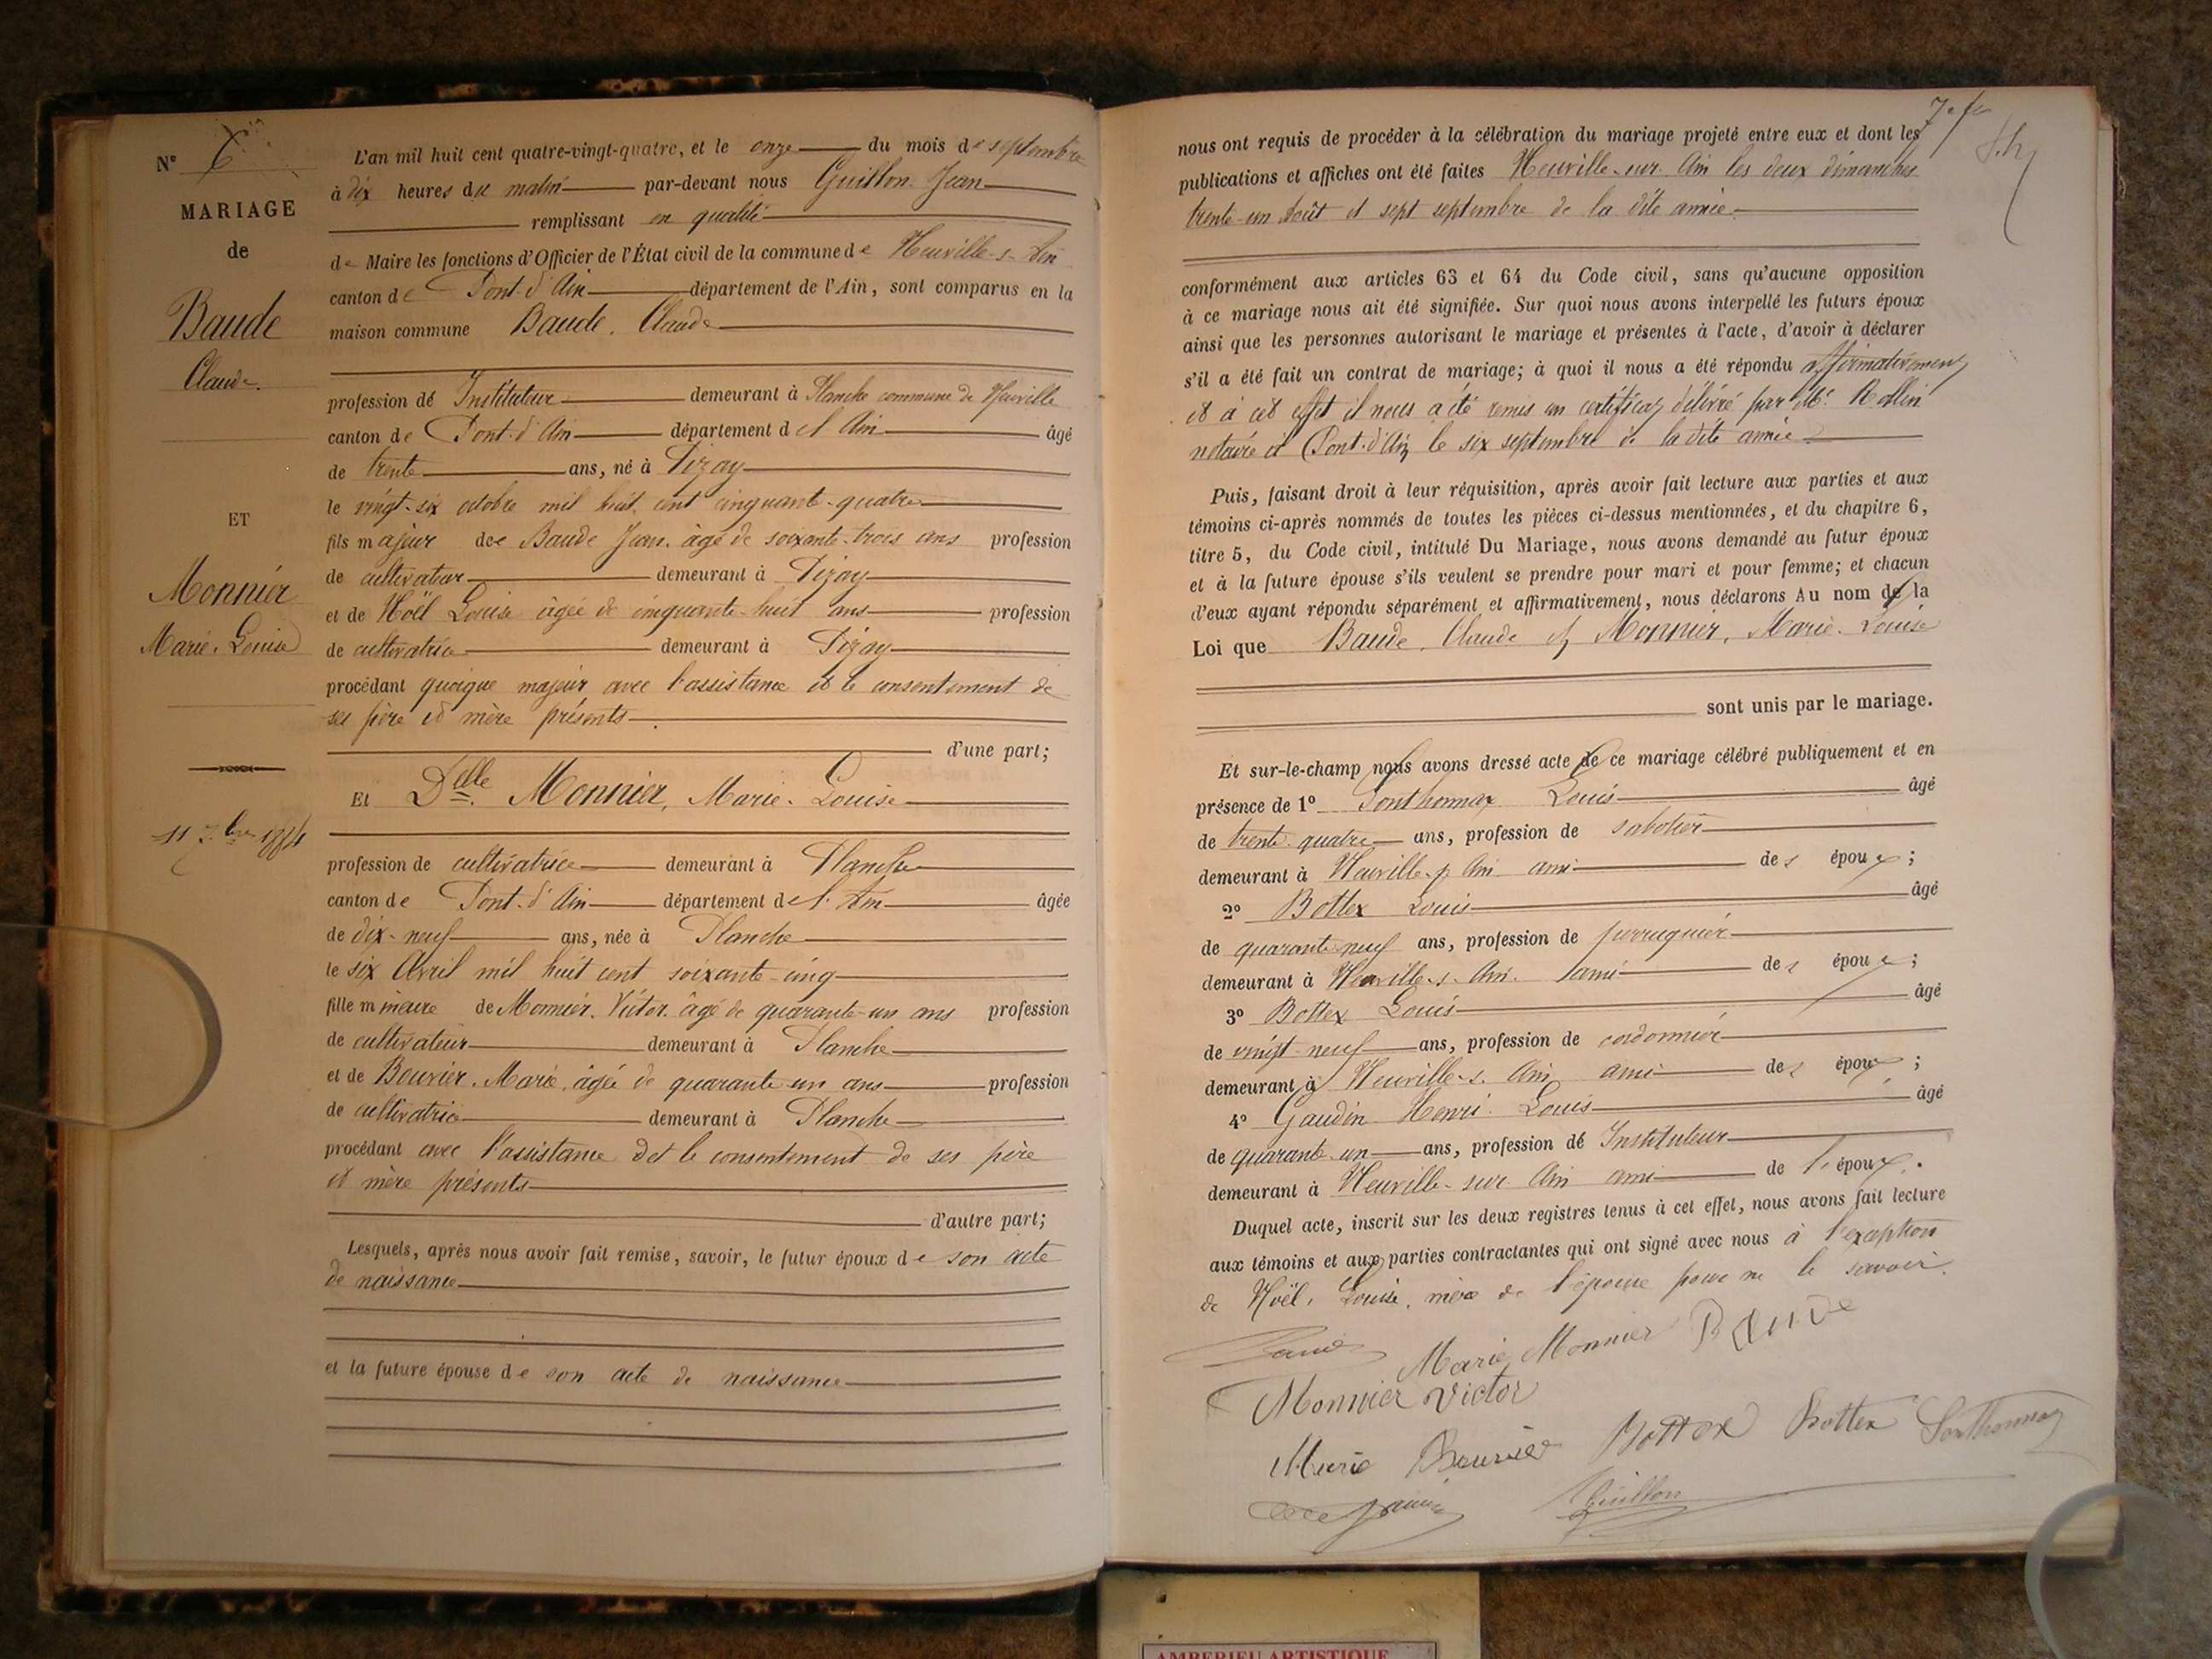 N° 6
MARIAGE
de
Baude
Claude.
ET
Monnier
Marie-Louise
11 7bre 1884
L'an mil huit cent quatre-vingt-quatre, et le onze du mois de septembre
à dix heures du matin par-devant nous Guillon Jean
remplissant en qualité
de Maire les fonctions d'Officier de l'État civil de la commune de Neuville-s-Ain
canton de Pont-d'Ain département de l'Ain, sont comparus en la
maison commune Baude, Claude
profession de Instituteur demeurant à Planche commune de Neuville
canton de Pont-d'Ain département de l'Ain âgé
de trente ans, né à Dizay
le vingt-six octobre mil huit cent cinquante-quatre
fils majeur de Baude Jean, âgé de soixante-trois ans profession
de cultivateur demeurant à Dizay
et de Noël Louise âgée de cinquante-huit ans profession
de cultivatrice demeurant à Dizay
procédant quoique majeur avec l'assistance et le consentement de
ses père et mère présents.
d'une part;
Et Delle Monnier, Marie-Louise
profession de cultivatrice demeurant à Planche
canton de Pont-d'Ain département de l'Ain âgée
de dix-neuf ans, née à Planche
le six Avril mil huit cent soixante-cinq
fille mineure de Monnier, Victor, âgé de quarante-un ans profession
de cultivateur demeurant à Planche
et de Bouvier, Marie, âgée de quarante-un ans profession
de cultivatrice demeurant à Planche
procédant avec l'assistance et le consentement de ses père
et mère présents
d'autre part;
Lesquels, après nous avoir fait remise, savoir, le futur époux de son acte
de naissance
et la future épouse de son acte de naissance
nous ont requis de procéder à la célébration du mariage projeté entre eux et dont les
publications et affiches ont été faites Neuville-sur-Ain les deux dimanches
trente-un Août et sept septembre de la dite année.
conformément aux articles 63 et 64 du Code civil, sans qu'aucune opposition
à ce mariage nous ait été signifiée. Sur quoi nous avons interpellé les futurs époux
ainsi que les personnes autorisant le mariage et présentes à l'acte, d'avoir à déclarer
s'il a été fait un contrat de mariage; à quoi il nous a été répondu affirmativement
et à cet effet il nous a été remis un certificat délivré par Me. Rollin
notaire à Pont-d'Ain le six septembre de la dite année
Puis, faisant droit à leur réquisition, après avoir fait lecture aux parties et aux
témoins ci-après nommés de toutes les pièces ci-dessus mentionnées, et du chapitre 6,
titre 5, du Code civil, intitulé Du Mariage, nous avons demandé au futur époux
et à la future épouse s'ils veulent se prendre pour mari et pour femme; et chacun
d'eux ayant répondu séparément et affirmativement, nous déclarons Au nom de la
Loi que Baude, Claude et Monnier, Marie-Louise
sont unis par le mariage.
Et sur-le-champ nous avons dressé acte de ce mariage célébré publiquement et en
présence de 1° Ponthonnax Louis âgé
de trente-quatre ans, profession de sabotier
demeurant à Neuville-s-Ain ami des époux;
2° Bottex Louis âgé
de quarante-neuf ans, profession de perruquier
demeurant à Neuville-s-Ain. ami des époux;
3° Bottex Louis âgé
de vingt-neuf ans, profession de cordonnier
demeurant à Neuville-s-Ain ami des époux;
4° Gaudin Henri-Louis âgé
de quarante-un ans, profession de Instituteur
demeurant à Neuville-sur-Ain ami de l'époux.
Duquel acte, inscrit sur les deux registres tenus à cet effet, nous avons fait lecture
aux témoins et aux parties contractantes qui ont signé avec nous à l'exception
de Noël, Louise, mère de l'époux pour ne le savoir.
Marie Monnier Baude
Monnier Victor
Marie Bouvier Bottex Bottex Ponthonnax
Guillon
AMBERIEU ARTISTIQUE